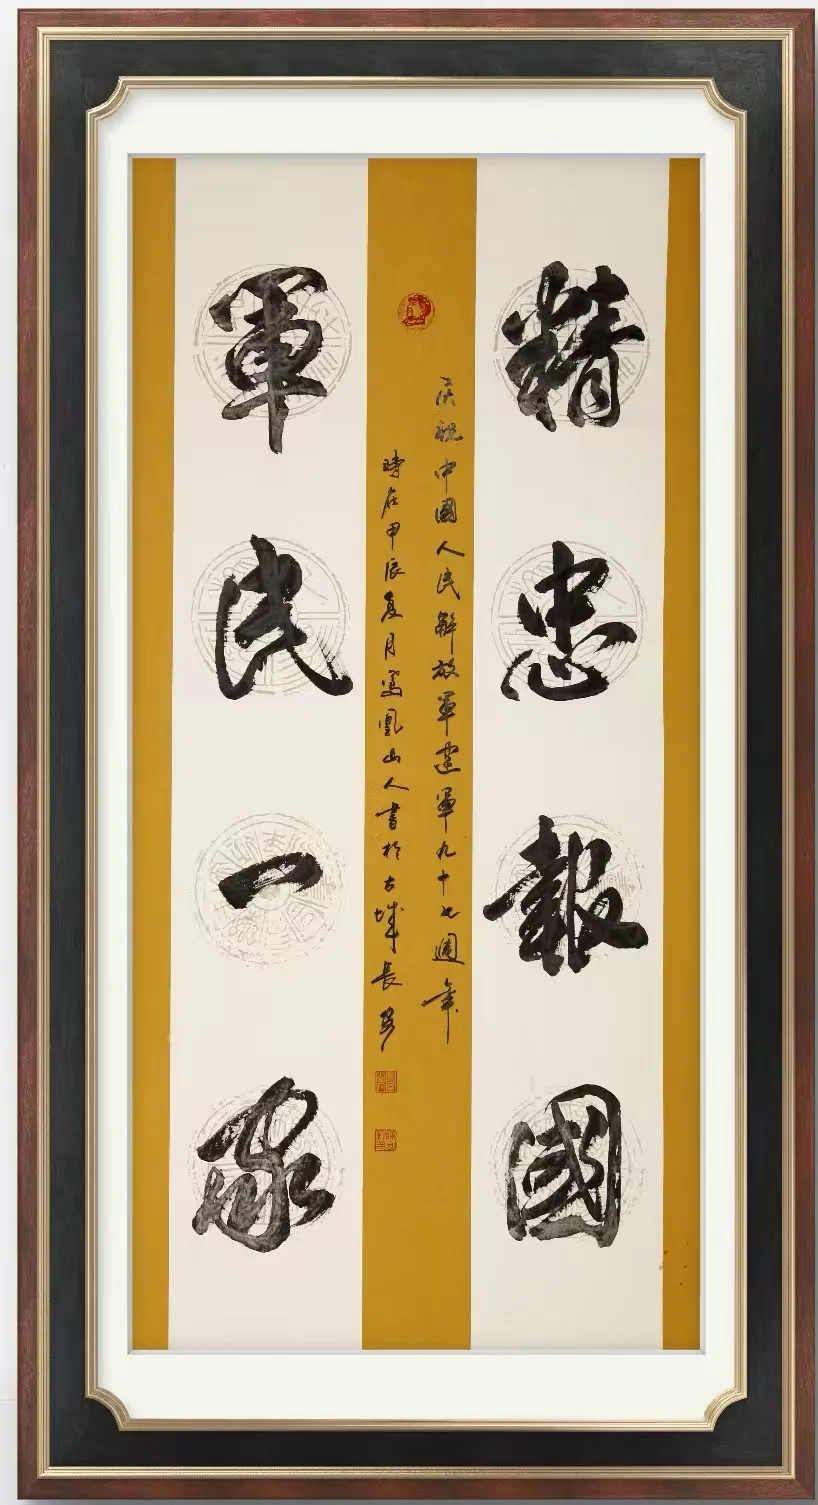 精忠報國
軍民一家
庆祝中國人民解放軍建軍九十七週年
時在甲辰夏月鳳凰山人書於古城長安